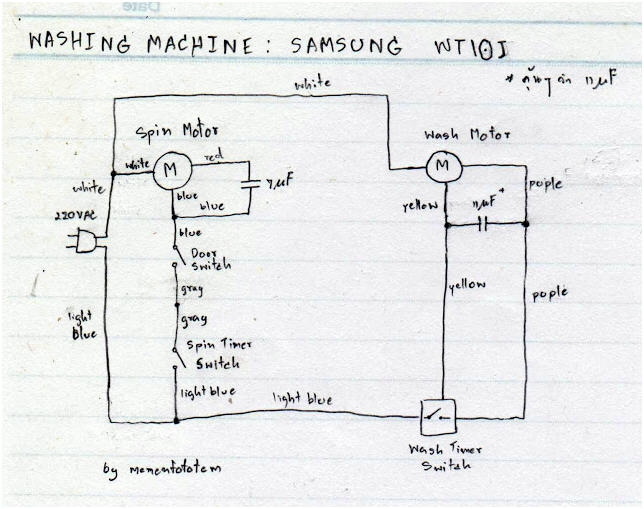 WASHING MACHINE : SAMSUNG WT10J
μF
white
Spin Motor
Wash Motor
white
M
red
M
white
blue
blue
μF
yellow
μF*
pople
220VAC
blue
Door
Switch
gray
light
blue
gray
yellow
pople
Spin Timer
Switch
light blue
light blue
Wash Timer
Switch
by mementototem